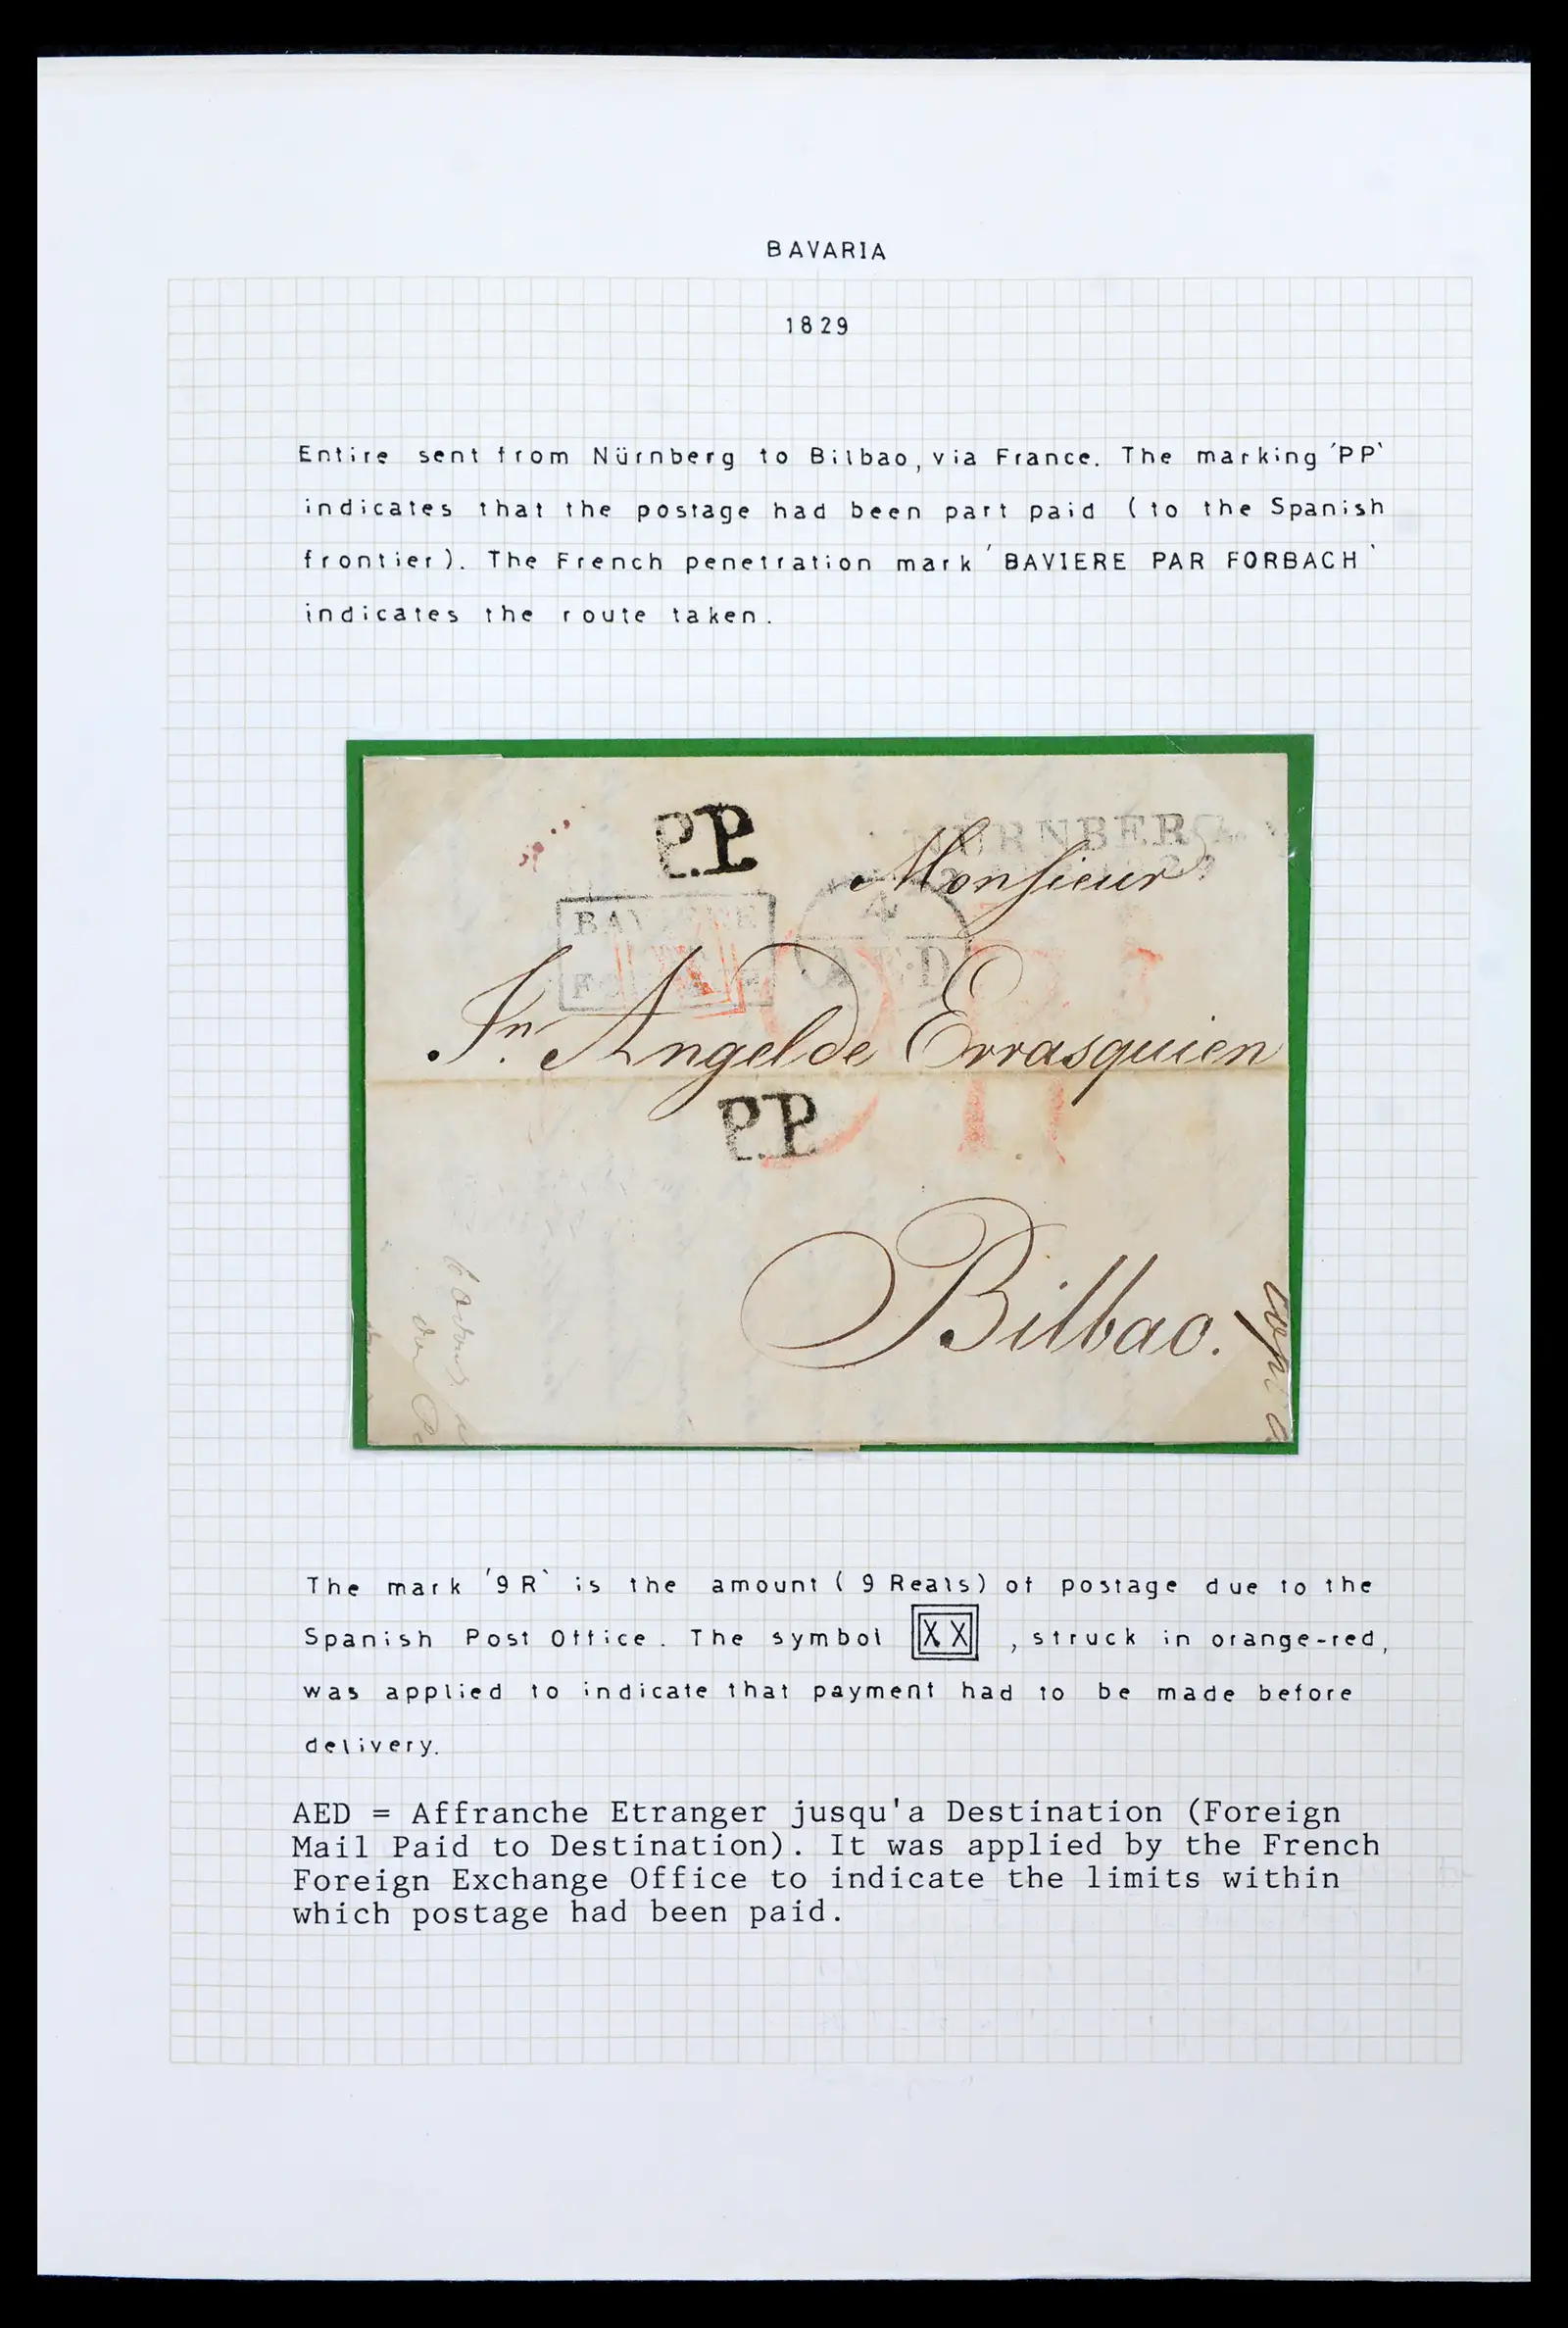 BAVARIA
1829
Entire sent from Nürnberg to Bilbao, via France. The marking 'PP'
indicates that the postage had been part paid (to the Spanish
frontier). The French penetration mark 'BAVIERE PAR FORBACH'
indicates the route taken.
P.P.
NÜRNBERG
Monsieur
BAVIERE
4
A.E.D
Jn. Angel de Errasquien
P.P.
Bilbao.
The mark '9R' is the amount (9 Reals) of postage due to the
Spanish Post Office. The symbol XX , struck in orange-red,
was applied to indicate that payment had to be made before
delivery.
AED = Affranche Etranger jusqu'a Destination (Foreign
Mail Paid to Destination). It was applied by the French
Foreign Exchange Office to indicate the limits within
which postage had been paid.